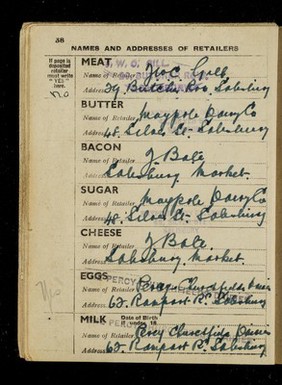 38
NAMES AND ADDRESSES OF RETAILERS
If page is deposited retailer must write "YES" here.
NO
MEAT
W. O. GILL
Name of Retailer
Address 39 Butcher Row, Salisbury
BUTTER
Name of Retailer Maypole Dairy Co
Address 48. Silver St. Salisbury
BACON
Name of Retailer J Bate
Address Salisbury Market.
SUGAR
Name of Retailer Maypole Dairy Co
Address 48. Silver St. Salisbury
CHEESE
Name of Retailer J Bate.
Address Salisbury Market.
EGGS
Name of Retailer Percy Churchfields Dairies
Address 62. Rampart Rd. Salisbury
MILK
Date of Birth if under 18
Name of Retailer Percy Churchfields Dairies
Address 62. Rampart Rd. Salisbury